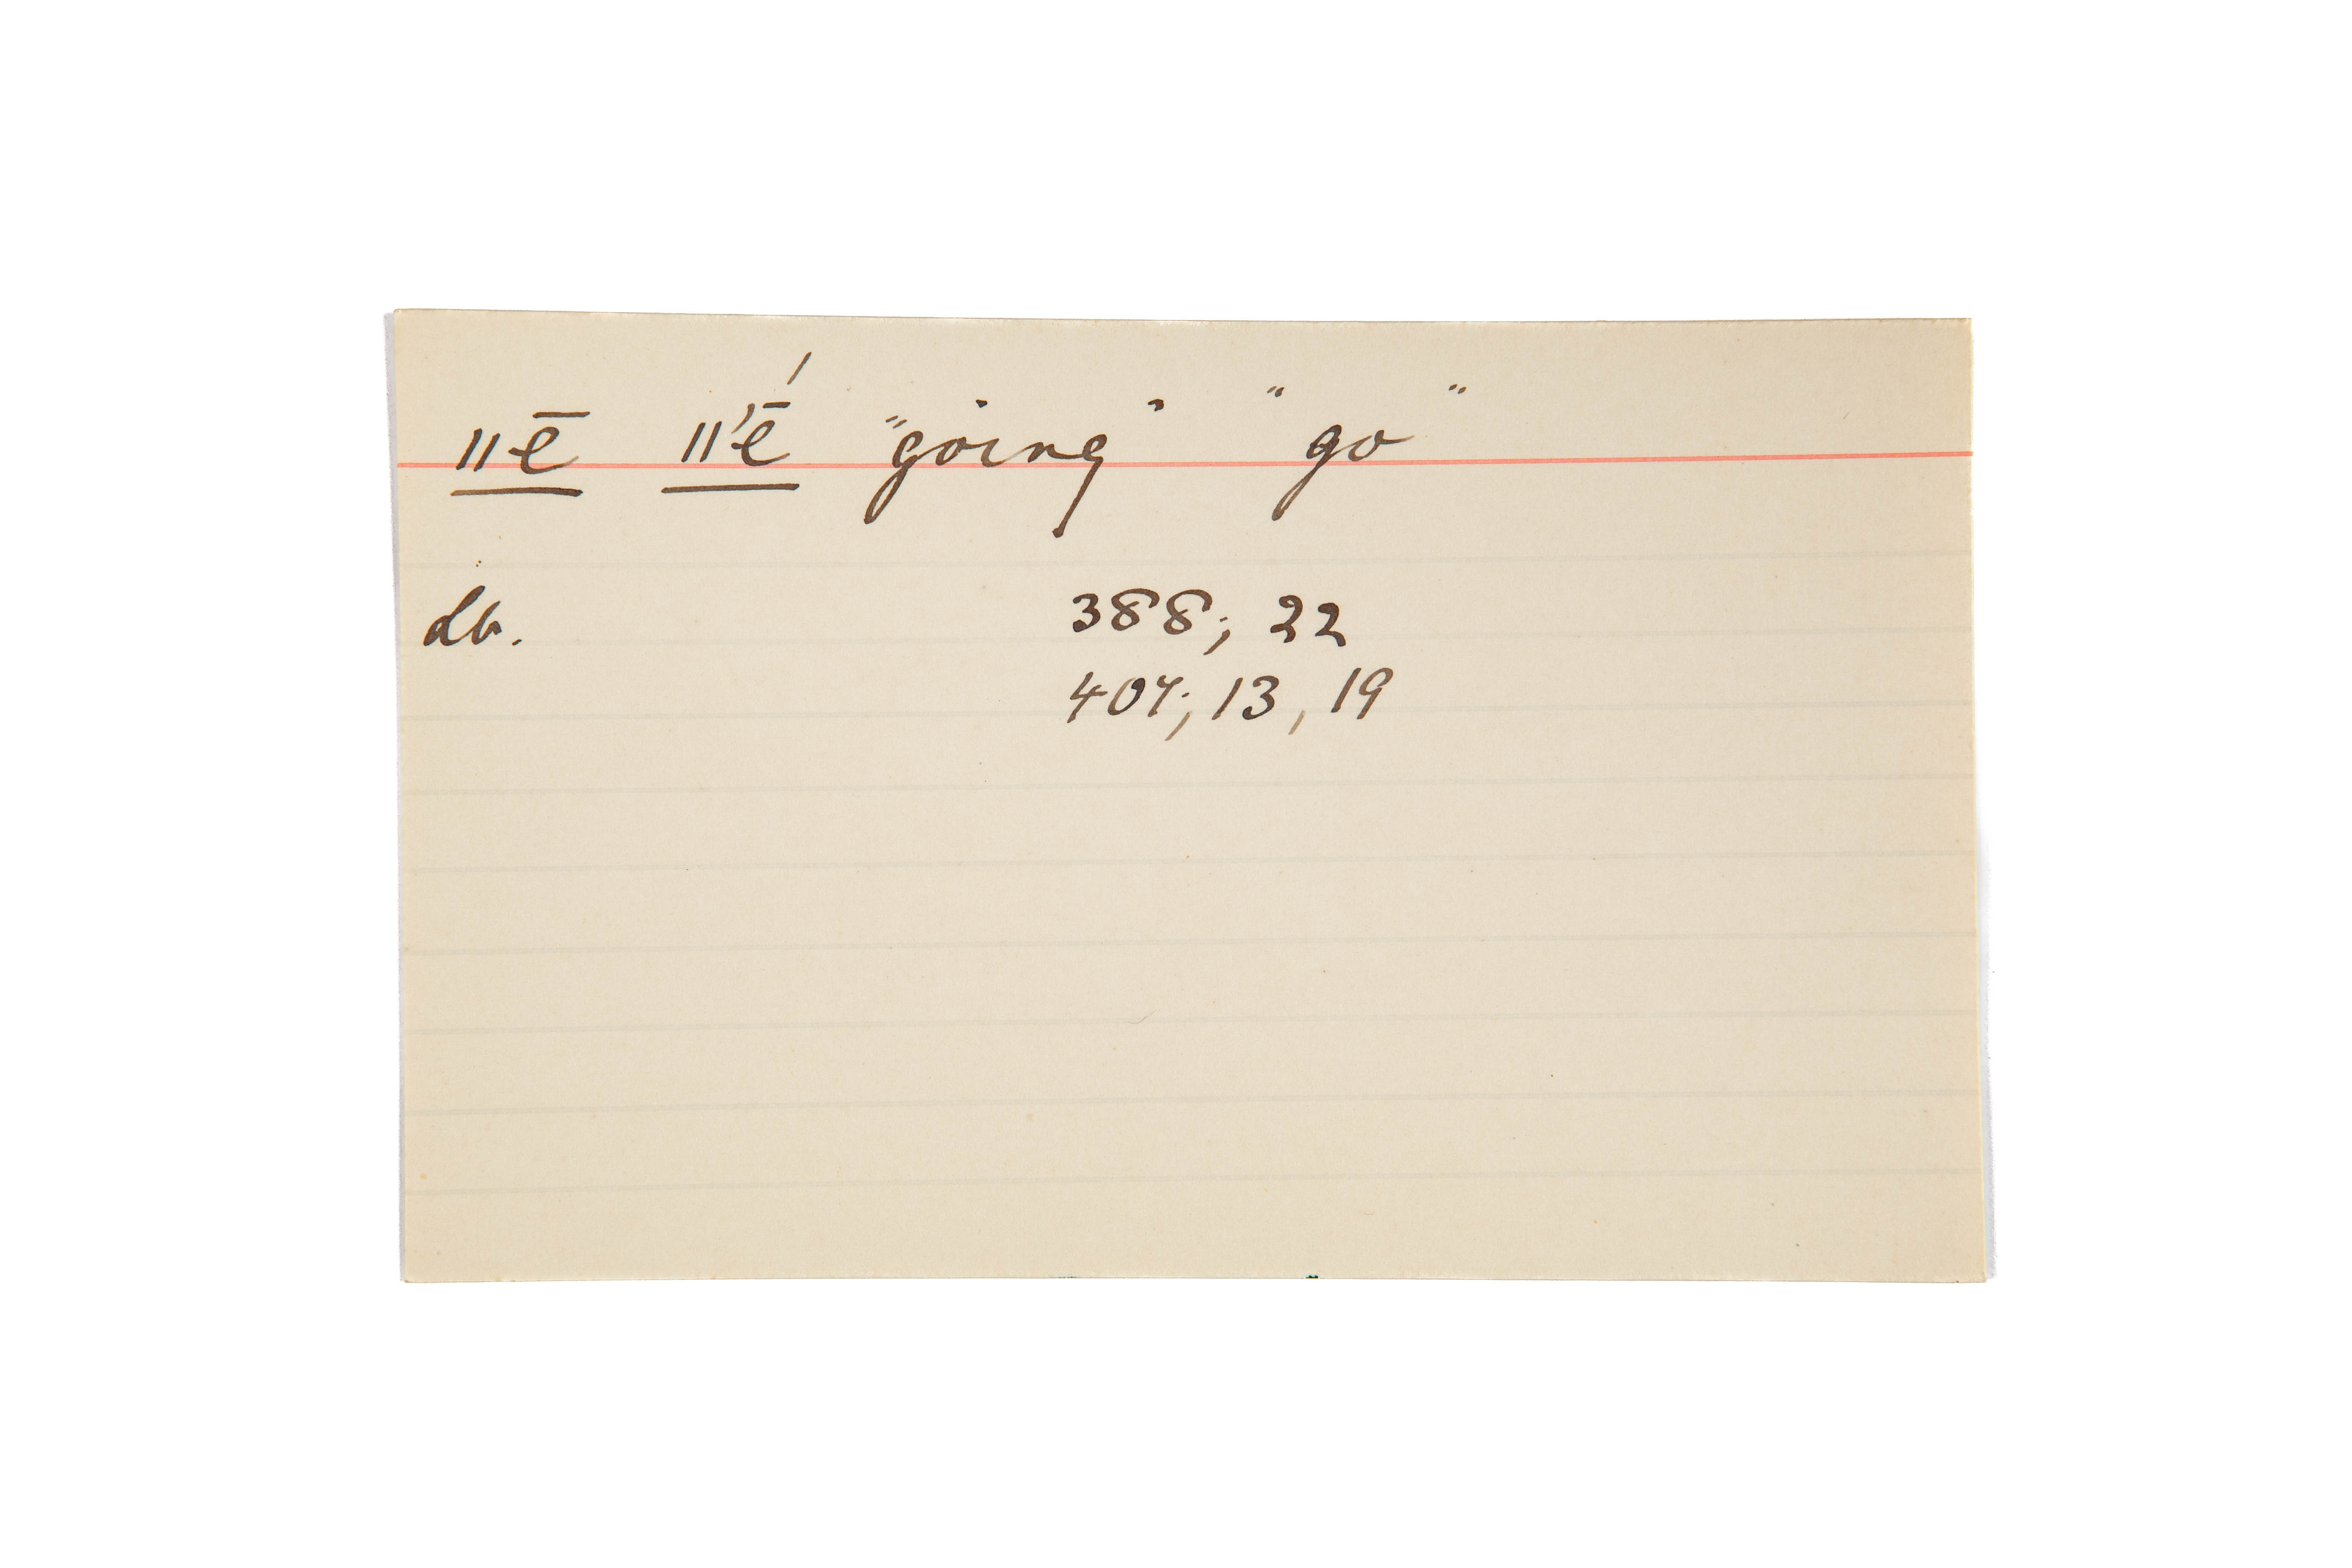 ǁē ǁ'ḗ "going" "go"
Lb. 388; 22
407; 13, 19